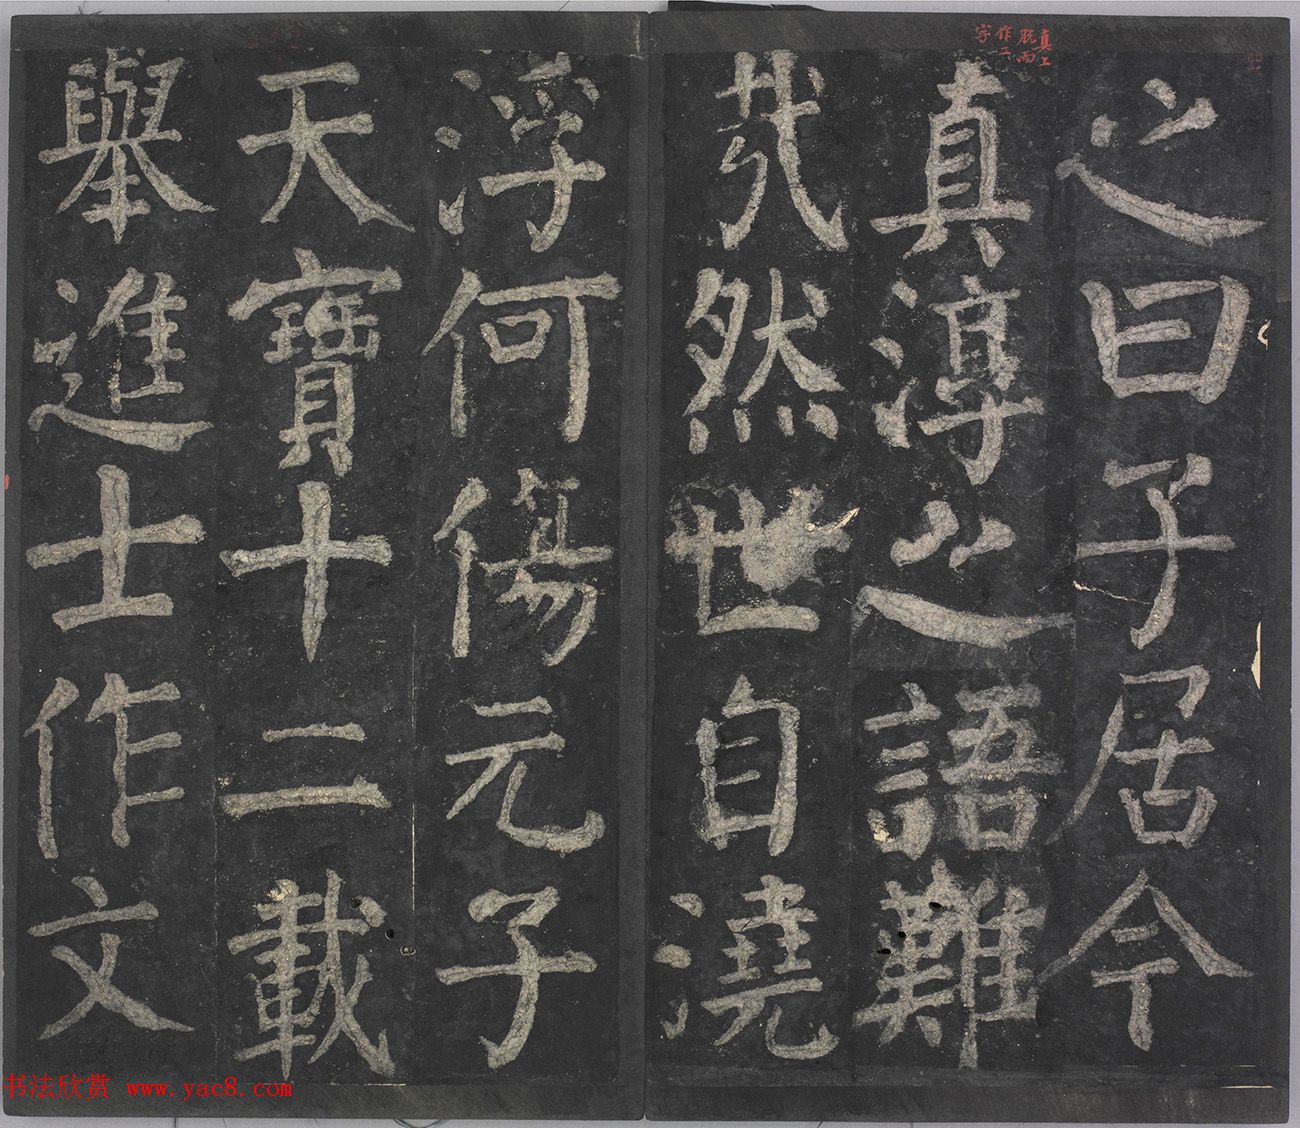 真上
脫而
作二
字
之曰子居今
真淳之語難
㦲然世自澆
浮何傷元子
天寶十二載
舉進士作文
书法欣赏 www.yac8.com